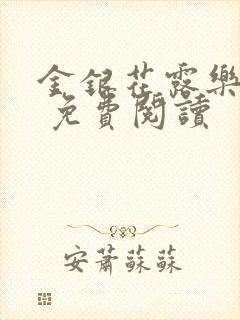 金銀花露樂
免費閱讀
安蕭蘇蘇